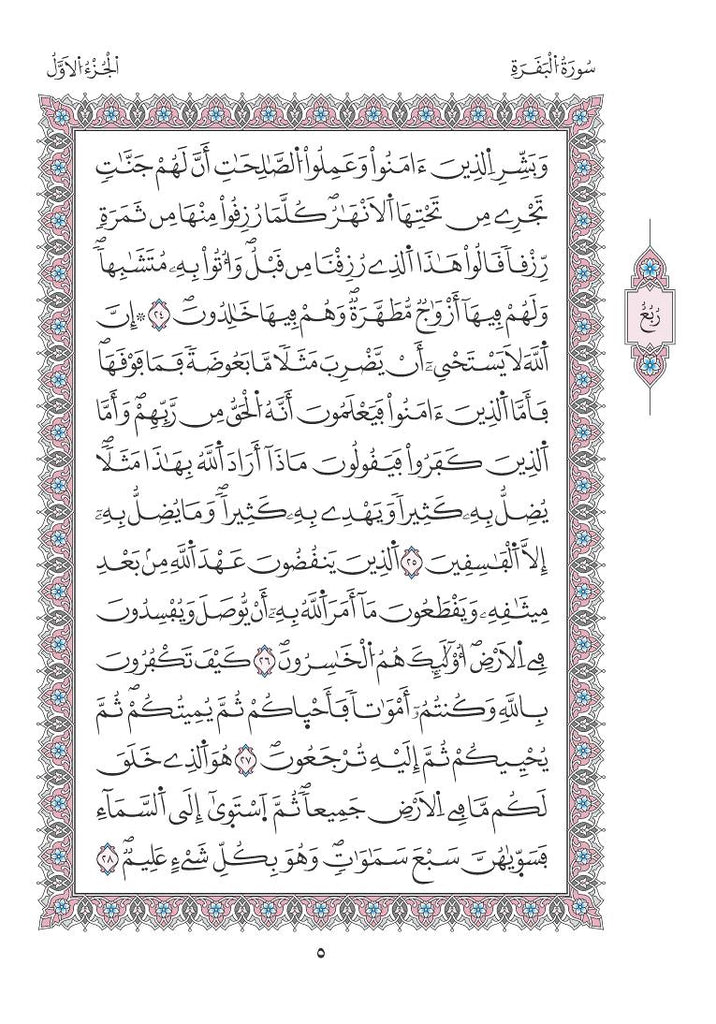 سُورَةُ الْبَقَرَةِ
الْجُزْءُ الْأَوَّلُ
وَبَشِّرِ اِ۬لذِينَ ءَامَنُواْ وَعَمِلُواْ اُ۬لصَّٰلِحَٰتِ أَنَّ لَهُمْ جَنَّٰتٖ
تَجْرِے مِن تَحْتِهَا اَ۬لَانْهَٰرُۖ كُلَّمَا رُزِقُواْ مِنْهَا مِن ثَمَرَةٖ
رِّزْقاٗ قَالُواْ هَٰذَا اَ۬لذِے رُزِقْنَا مِن قَبْلُۖ وَأُتُواْ بِهِۦ مُتَشَٰبِهاٗۖ
وَلَهُمْ فِيهَآ أَزْوَٰجٞ مُّطَهَّرَةٞۖ وَهُمْ فِيهَا خَٰلِدُونَۖ ٢٤ ۞إِنَّ
اَ۬للَّهَ لَا يَسْتَحْيِۦٓ أَنْ يَّضْرِبَ مَثَلاٗ مَّا بَعُوضَةٗ فَمَا فَوْقَهَاۖ
فَأَمَّا اَ۬لذِينَ ءَامَنُواْ فَيَعْلَمُونَ أَنَّهُ اُ۬لْحَقُّ مِن رَّبِّهِمْۖ وَأَمَّا
اَ۬لذِينَ كَفَرُواْ فَيَقُولُونَ مَاذَآ أَرَادَ اَ۬للَّهُ بِهَٰذَا مَثَلاٗۖ
يُضِلُّ بِهِۦ كَثِيراٗ وَيَهْدِے بِهِۦ كَثِيراٗۖ وَمَا يُضِلُّ بِهِۦٓ
إِلَّا اَ۬لْفَٰسِقِينَ ٢٥ اَ۬لذِينَ يَنقُضُونَ عَهْدَ اَ۬للَّهِ مِنۢ بَعْدِ
مِيثَٰقِهِۦ وَيَقْطَعُونَ مَآ أَمَرَ اَ۬للَّهُ بِهِۦٓ أَنْ يُّوصَلَ وَيُفْسِدُونَ
فِے اِ۬لَارْضِۖ أُوْلَٰٓئِكَ هُمُ اُ۬لْخَٰسِرُونَۖ ٢٦ كَيْفَ تَكْفُرُونَ
بِاللَّهِ وَكُنتُمُۥٓ أَمْوَٰتاٗ فَأَحْيَٰكُمْ ثُمَّ يُمِيتُكُمْۖ ثُمَّ
يُحْيِيكُمْ ثُمَّ إِلَيْهِ تُرْجَعُونَۖ ٢٧ هُوَ اَ۬لذِے خَلَقَ
لَكُم مَّا فِے اِ۬لَارْضِ جَمِيعاٗۖ ثُمَّ اَ۪سْتَوَىٰٓ إِلَى اَ۬لسَّمَآءِ
فَسَوَّىٰهُنَّ سَبْعَ سَمَٰوَٰتٖۖ وَهُوَ بِكُلِّ شَےْءٍ عَلِيمٞۖ ٢٨
رُبُعُ
٥